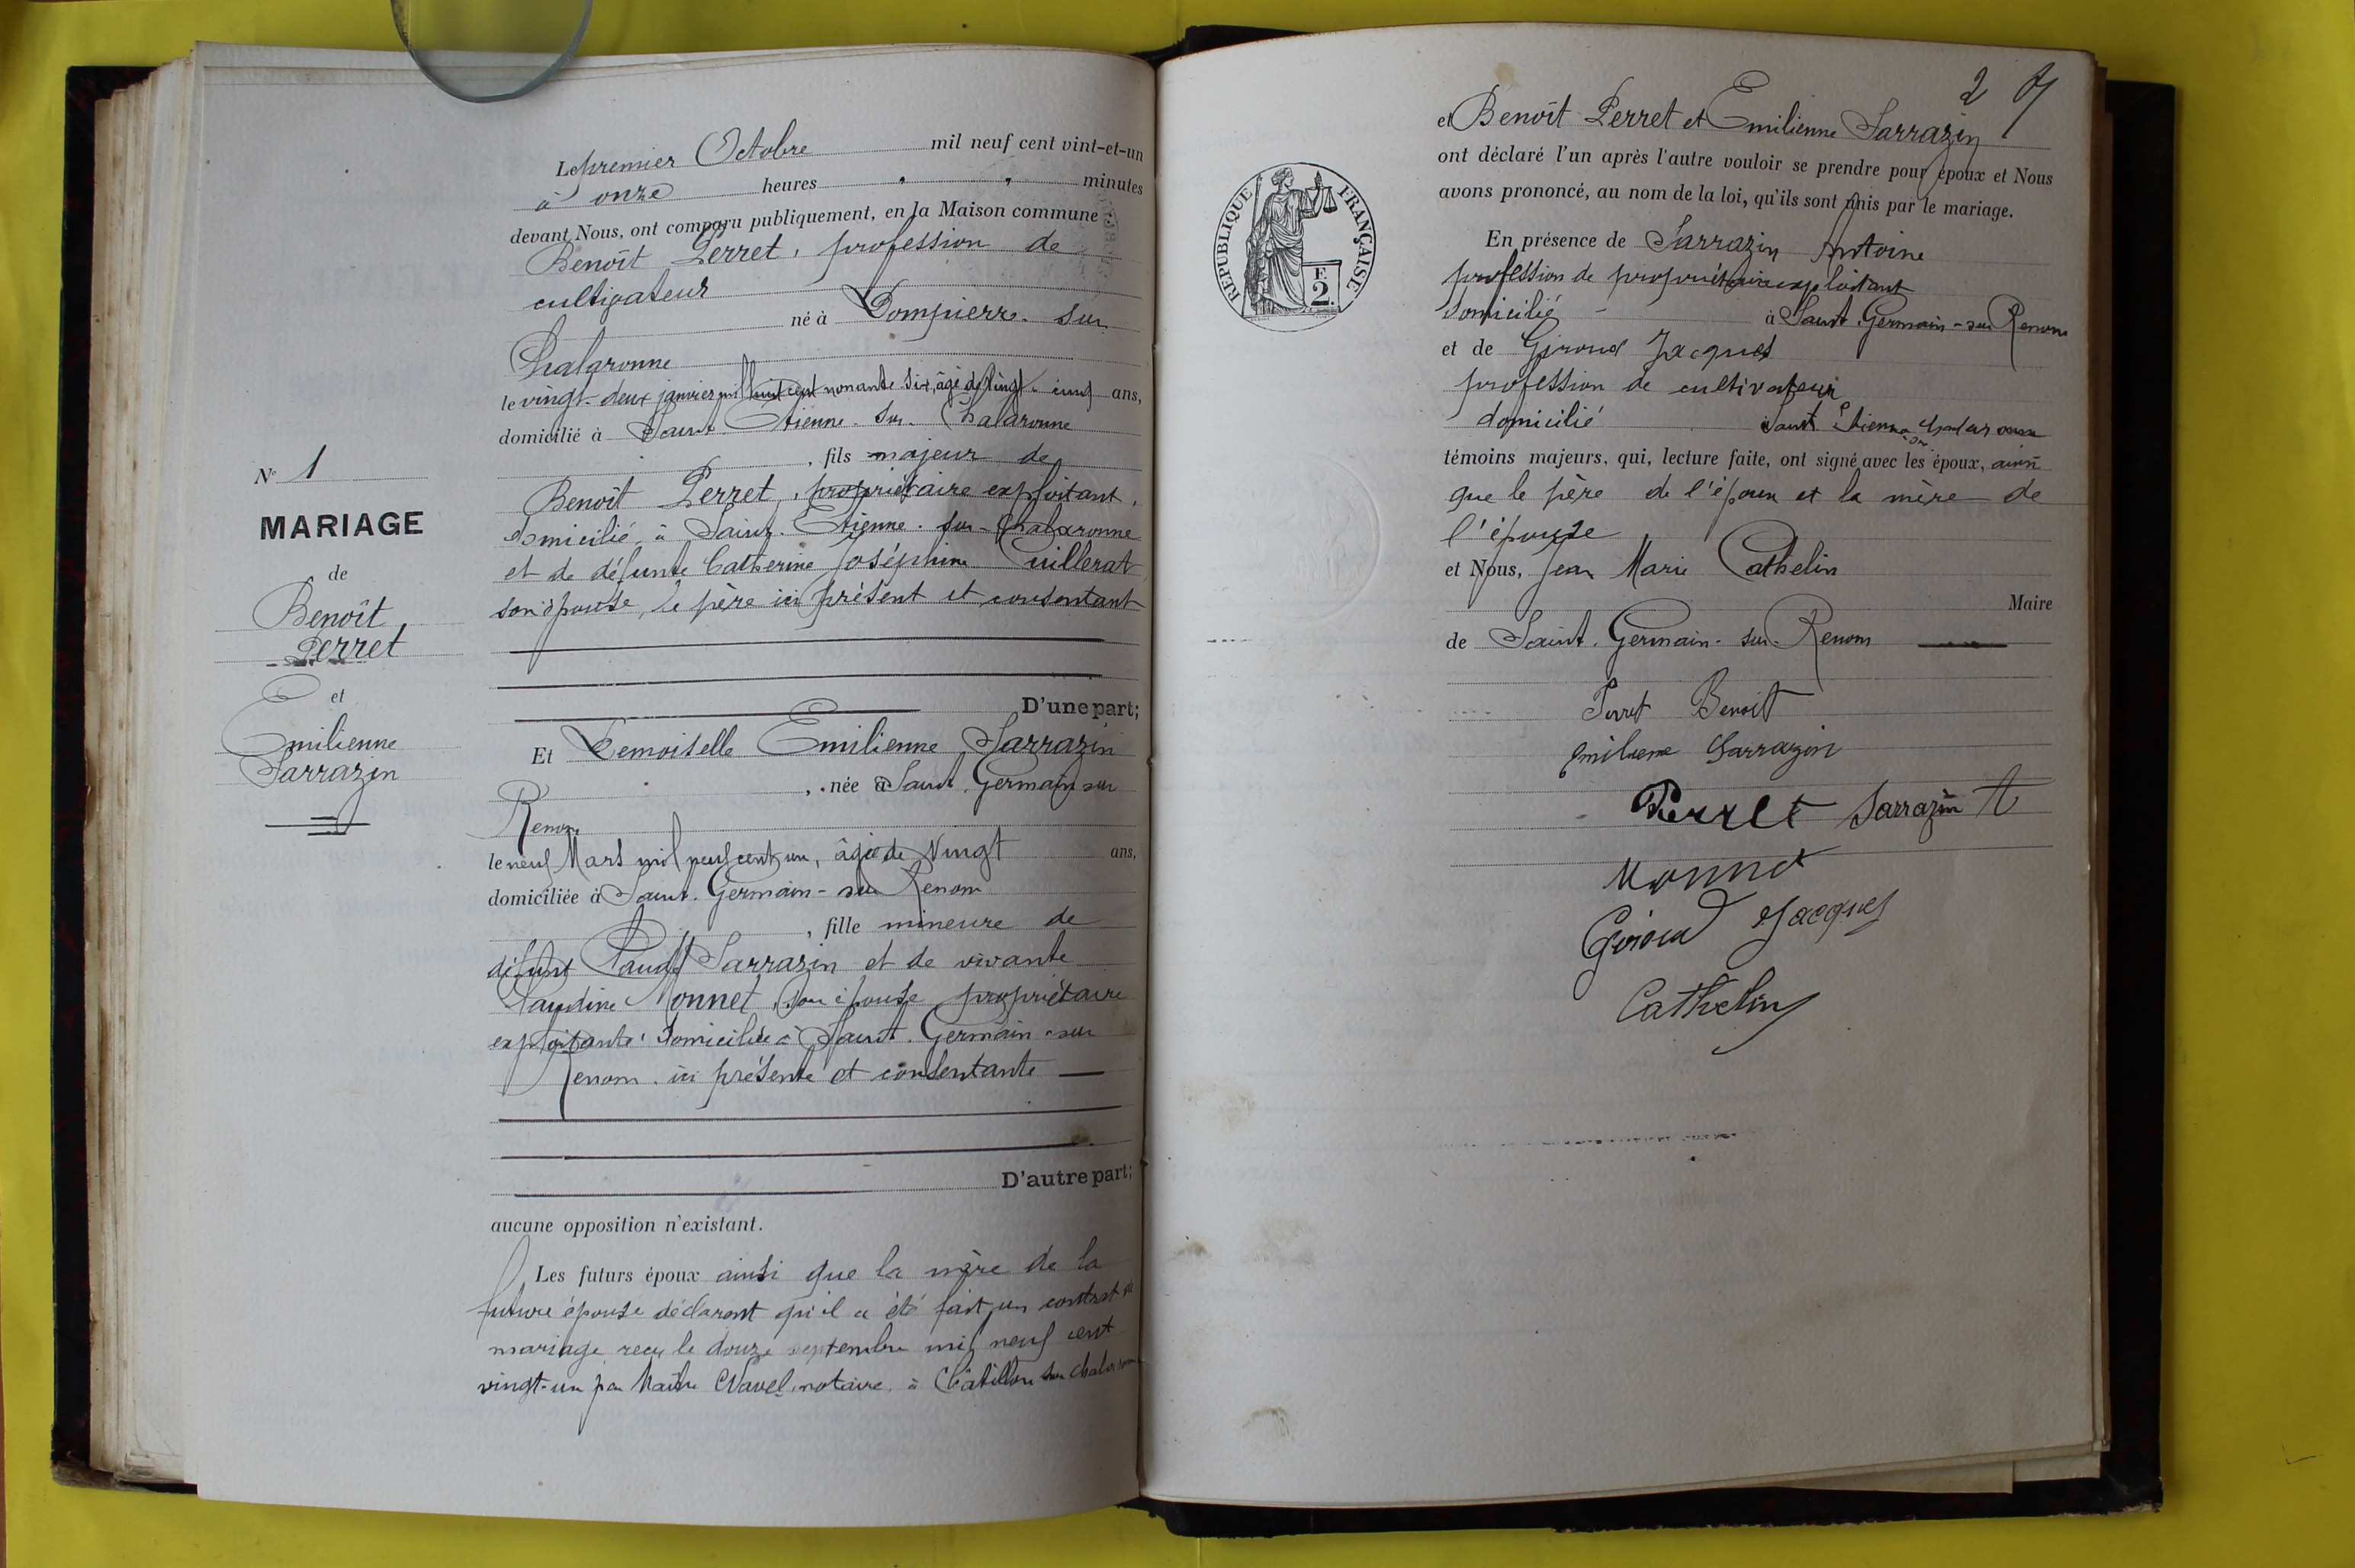 Le premier Octobre mil neuf cent vint-et-un
à onze heures " " minutes
devant Nous, ont comparu publiquement, en la Maison commune :
Benoît Perret, profession de
cultivateur
né à Dompierre-sur
Chalaronne
le vingt-deux janvier mil huit cent nonante six, âgé de vingt-cinq ans,
domicilié à Saint-Etienne-sur-Chalaronne
, fils majeur de
Benoît Perret, propriétaire exploitant,
domicilié à Saint-Etienne-sur-Chalaronne
et de défunte Catherine Joséphine Cuillerat
son épouse, le père ici présent et consentant
D'une part;
Nº 1
MARIAGE
de
Benoît
Perret
et
Emilienne
Sarrazin
Et Demoiselle Emilienne Sarrazin
, née à Saint-Germain sur
Renom
le neuf Mars mil neuf cent un, âgée de Vingt ans,
domiciliée à Saint-Germain-sur Renom
, fille mineure de
défunt Claude Sarrazin et de vivante
Claudine Monnet, son épouse propriétaire
exploitante, domiciliée à Saint-Germain-sur
Renom, ici présente et consentante
D'autre part;
aucune opposition n'existant.
Les futurs époux ainsi que la mère de la
future épouse déclarent qu'il a été fait un contrat de
mariage reçu le douze septembre mil neuf cent
vingt-un par Maître notaire à Châtillon sur Chalaronne
2
et Benoît Perret et Emilienne Sarrazin
ont déclaré l'un après l'autre vouloir se prendre pour époux et Nous
avons prononcé, au nom de la loi, qu'ils sont unis par le mariage.
RÉPUBLIQUE FRANÇAISE
F.
2.
En présence de Sarrazin Antoine
profession de propriétaire exploitant
domicilié à Saint-Germain-sur Renom
et de Giroud Jacques
profession de cultivateur
domicilié Saint Etienne sur Chalaronne
témoins majeurs, qui, lecture faite, ont signé avec les époux, ainsi
que le père de l'époux et la mère de
l'épouse
et Nous, Jean Marie Cathelin
Maire
de Saint-Germain-sur-Renom
Perret Benoit
Emilienne Sarrazin
Perret Sarrazin A
Monnet
Giroud Jacques
Cathelin